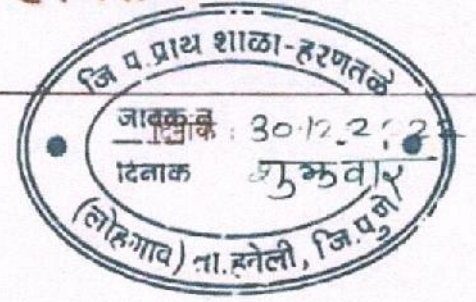 जि प. प्राथ शाळा-हरणतळे
जावक नं
दिनांक : 30.12.2022
दिनांक शुक्रवार
(लोहगाव) ता. हवेली, जि. पुणे